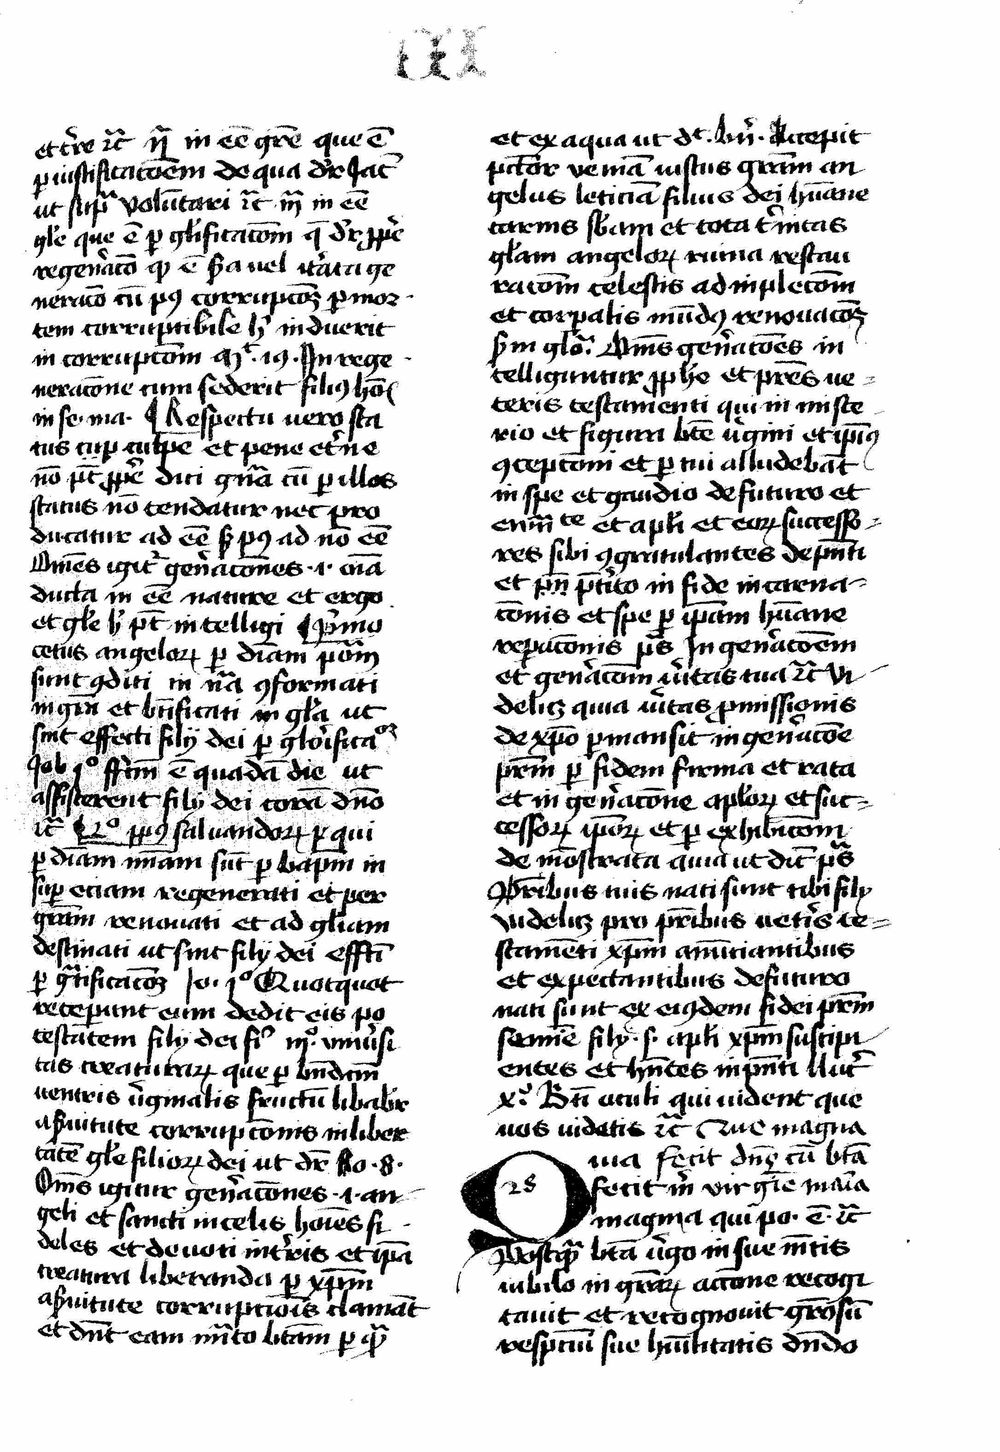 III
et c̄re ⁊c̄ ij̄ in ēē gr̄e que ē
ꝑ iustificatōem de qua dr̄ Jac̄
ut sup̄ᵃ volūtari ⁊c̄ iij̄ in ēē
gl̄e que ē ꝑ gl̄ificatōm q̄ dr̄ ꝓpͥe
regen̄acō
neracō cū pꝰ corrupcōꝫ ꝑ mor
tem corruptibile h̄ induerit
in corrupcōm 19. In rege
neracōne cum sederit filiꝰ hōi
in se. ma. ¶ Respectu vero sta
tus culpe et pene et̄ne
nō pt̄ ꝓpͥe dici gn̄a cū ꝑ illos
status nō tendatur nec pro
ducatur ad ēē s̄ pꝰ ad nō ēē
Om̄es igit᷑ gen̄acōnes .i. oīa
ducta in ēē nature et ergo
et gl̄e h̄ pt̄ intelligi ¶ Pͥmo
cetus angeloꝝ ꝑ diāam potēm
sunt ꝯditi in nr̄a ꝯformati
in gr̄a et btīficati in gl̄a ut
sint effecti filij dei ꝑ glorifica
Job 1º ē quadā die ut
assisterent filij dei corā dn̄o
⁊c̄ ¶ 2º pp̄ꝰ saluandoꝝ ꝑ qui
ꝑ diāam sūt ꝑ bap̄m in
sup eciam regenerati et per
gr̄am renouati et ad gl̄iam
destinati ut sint filij dei effti
ꝑ gr̄tificacōꝫ Jo. 1º Quotquot
receperunt eum dedit eis po
testatem filij dei fiͥ iijº vniūsi
tas creaturaꝝ que ꝑ bn̄dcm̄
ventris v̄ginalis fructū libabit᷑
a s̄uitute corrupcōnis in liber
tatē gl̄e filioꝝ dei ut dr̄ Ro. 8.
Om̄s igitur gen̄acōnes .i. an
geli et sancti in celis hoīes fi
deles et deuoti in tr̄is et ip̄a
creatura liberanda ꝑ xp̄m
a s̄uitute corruptiōis clamāt
et dn̄t eam mr̄ito btām ꝑ qͣ
et ex aqua ut dc̄ Bn̄. Accepit
pctōr veniā iustus gr̄am an
gelus leticiā filius dei hūane
carnis sb̄am et tota tͥnitas
gl̄am angeloꝝ ruina restau
racōm celestis ad inplecōm
et corꝑalis mūdꝯ renouacōꝫ
s̄m glo. Om̄s gen̄acōes in
telliguntur ꝓph̄e et pr̄es ve
teris testamenti qui in miste
rio et figura bte v̄gini et ip̄iꝰ
ꝯcepcōni et ꝑtui alludebāt
in spe et gaudio de futuro et
et apl̄i et eoꝝ successo
res sibi ꝯgratulantes de pn̄ti
et pn̄ pt̄ito in fide incarna
cōnis et spe ꝑ ip̄am hūane
reꝑacōnis ps̄ In gen̄acōem
et gen̄acōm v̄itas tua ⁊c̄ vi
delicꝫ quia v̄itas ꝓmissionis
de xp̄o ꝑmansit in gen̄acōe
pr̄em ꝑ fidem firma et rata
et in gen̄acōne apl̄oꝝ et suc
cessoꝝ ip̄oꝝ et ꝑ exhibicōm
de mōstrata quia ut dic̄ ps̄
Pr̄ibus tuis nati sunt tibi filij
videlicꝫ pro pr̄ibus vetis te
stamēti xp̄m anūciantibus
et expectantibus de futuro
nati sunt ex eiꝯdem fidei pr̄em
semīe filij .s. apl̄i xp̄m suscipi
entes et hn̄tes in pn̄ti lluc̄
xº Bti oculi qui uident que
uos uidetis ⁊c̄ Que magna
uia fecit dn̄s cū btā
28
fecit m̄ virgīe maīa
magna qui po. ē. ⁊c̄
Postqͣ btā v̄go in sue mētis
iubilo in grāꝝ accōne recogi
tauit et recognouit grōsū
respcūi sue hūilitatis dn̄do